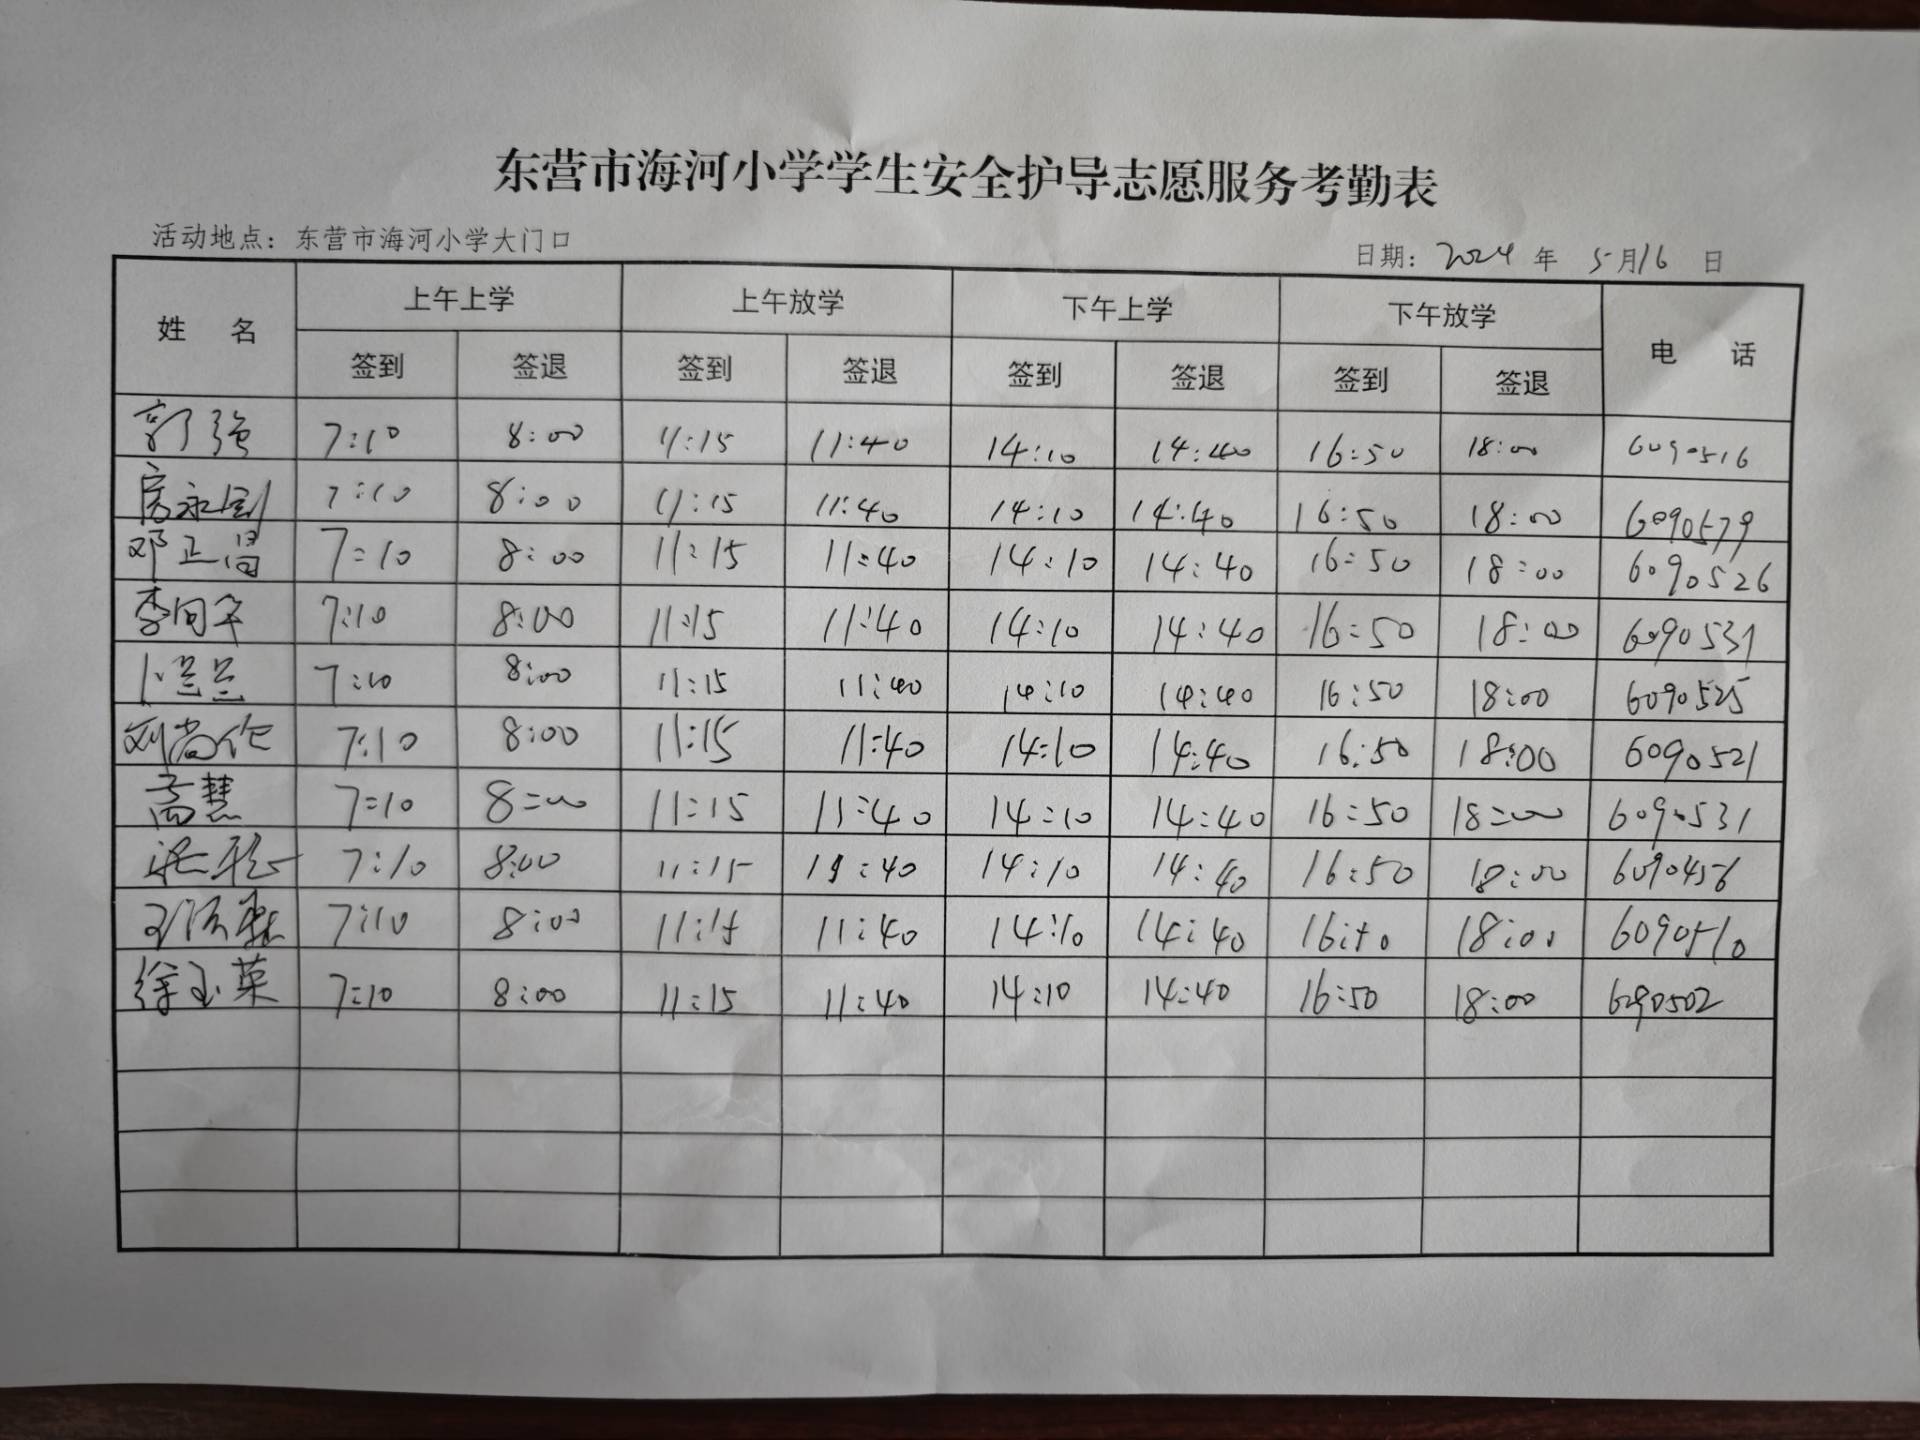 东营市海河小学学生安全护导志愿服务考勤表
活动地点：东营市海河小学大门口 日期：2024 年 5月16 日
姓 名 上午上学 上午放学 下午上学 下午放学 电 话
签到 签退 签到 签退 签到 签退 签到 签退
郭强 7:10 8:00 11:15 11:40 14:10 14:40 16:50 18:00 6090516
房永剑 7:10 8:00 11:15 11:40 14:10 14:40 16:50 18:00 6090579
邓正昌 7:10 8:00 11:15 11:40 14:10 14:40 16:50 18:00 6090526
李向平 7:10 8:00 11:15 11:40 14:10 14:40 16:50 18:00 6090531
卜兰兰 7:10 8:00 11:15 11:40 14:10 14:40 16:50 18:00 6090525
刘尚伦 7:10 8:00 11:15 11:40 14:10 14:40 16:50 18:00 6090521
高慧 7:10 8:00 11:15 11:40 14:10 14:40 16:50 18:00 6090531
7:10 8:00 11:15 11:40 14:10 14:40 16:50 18:00 6090456
7:10 8:00 11:15 11:40 14:10 14:40 16:50 18:00 6090510
徐玉英 7:10 8:00 11:15 11:40 14:10 14:40 16:50 18:00 6090502